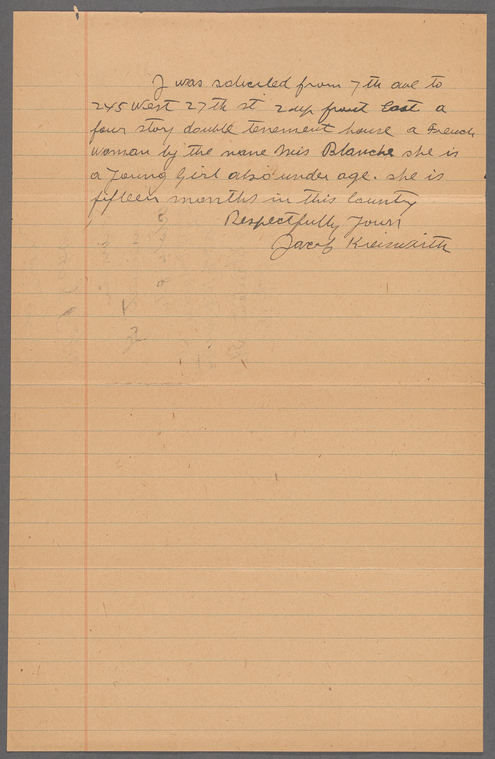 I was solicited from 7th ave to
245 West 27th st 2 up front East a
four story double tenement house a French
woman by the name Miss Blanche she is
a Young Girl also under age. she is
fifteen months in this County
Respectfully Yours
Jacob Kreiswirth